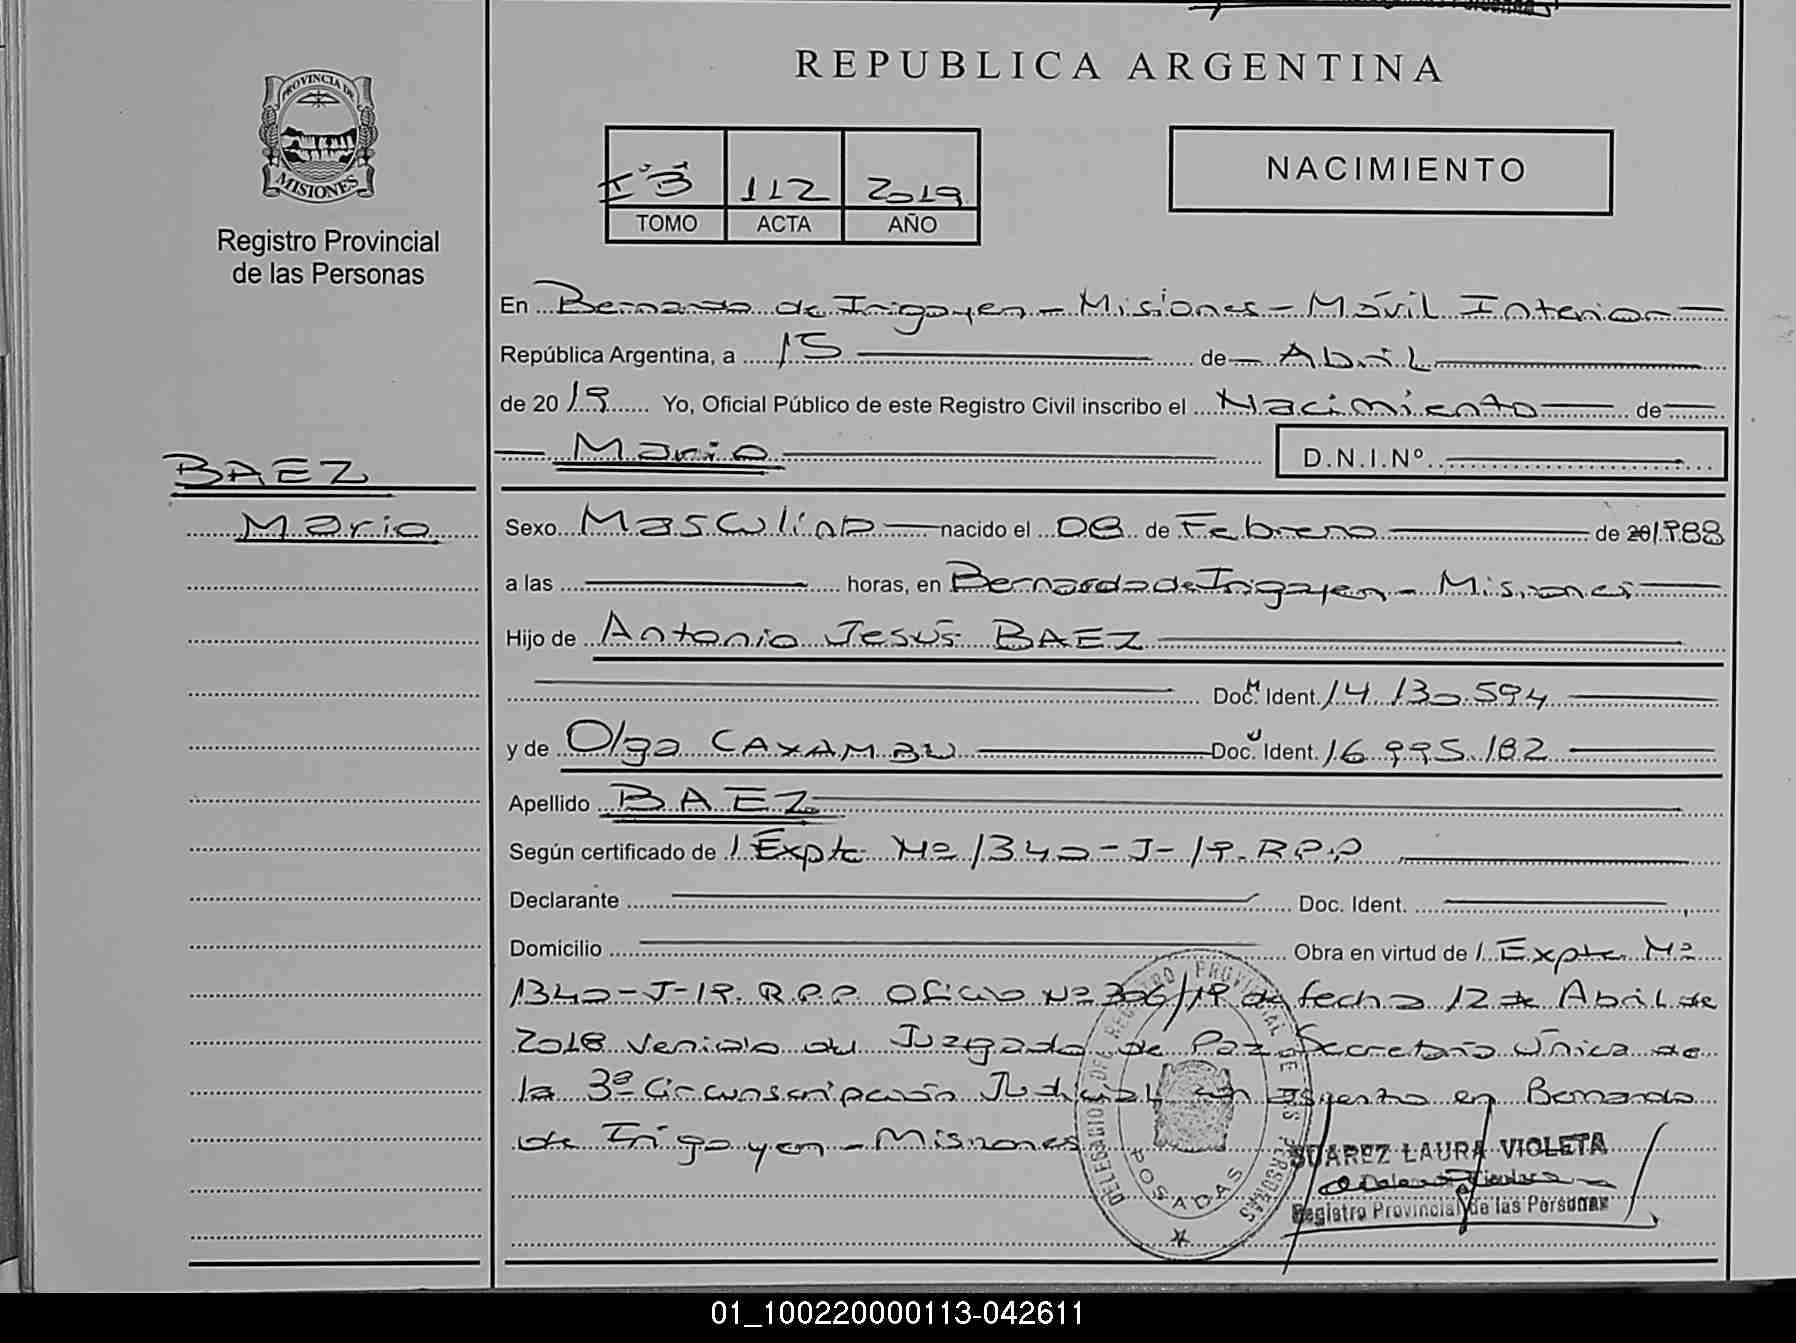 REPUBLICA ARGENTINA
PROVINCIA DE
MISIONES
Registro Provincial
de las Personas
112 2019
TOMO ACTA AÑO
NACIMIENTO
En Bernardo de Irigoyen - Misiones - Móvil Interior
República Argentina, a 15 de Abril
de 2019 Yo, Oficial Público de este Registro Civil inscribo el Nacimiento de
Mario D.N.I.Nº
BAEZ
Mario
Sexo Masculino nacido el 08 de Febrero de 20 1988
a las horas, en Bernardo de Irigoyen - Misiones
Hijo de Antonio Jesús BAEZ
Doc. M Ident. 14.130.594
y de Olga CAXAMBU Doc. U Ident. 16.995.182
Apellido BAEZ
Según certificado de / Expte Nº 1340-J-19. R.P.P
Declarante Doc. Ident.
Domicilio Obra en virtud de / Expte Nº
1340-J-19. R.P.P. Oficio Nº 306/19 de fecha 12 de Abril de
2018 venido del Juzgado de Paz Secretaría Única de
la 3ª Circunscripción Judicial con asiento en Bernardo
de Irigoyen - Misiones
DELEGACION DEL REGISTRO PROVINCIAL DE LAS PERSONAS
POSADAS
SUAREZ LAURA VIOLETA
Registro Provincial de las Personas
01_100220000113-042611